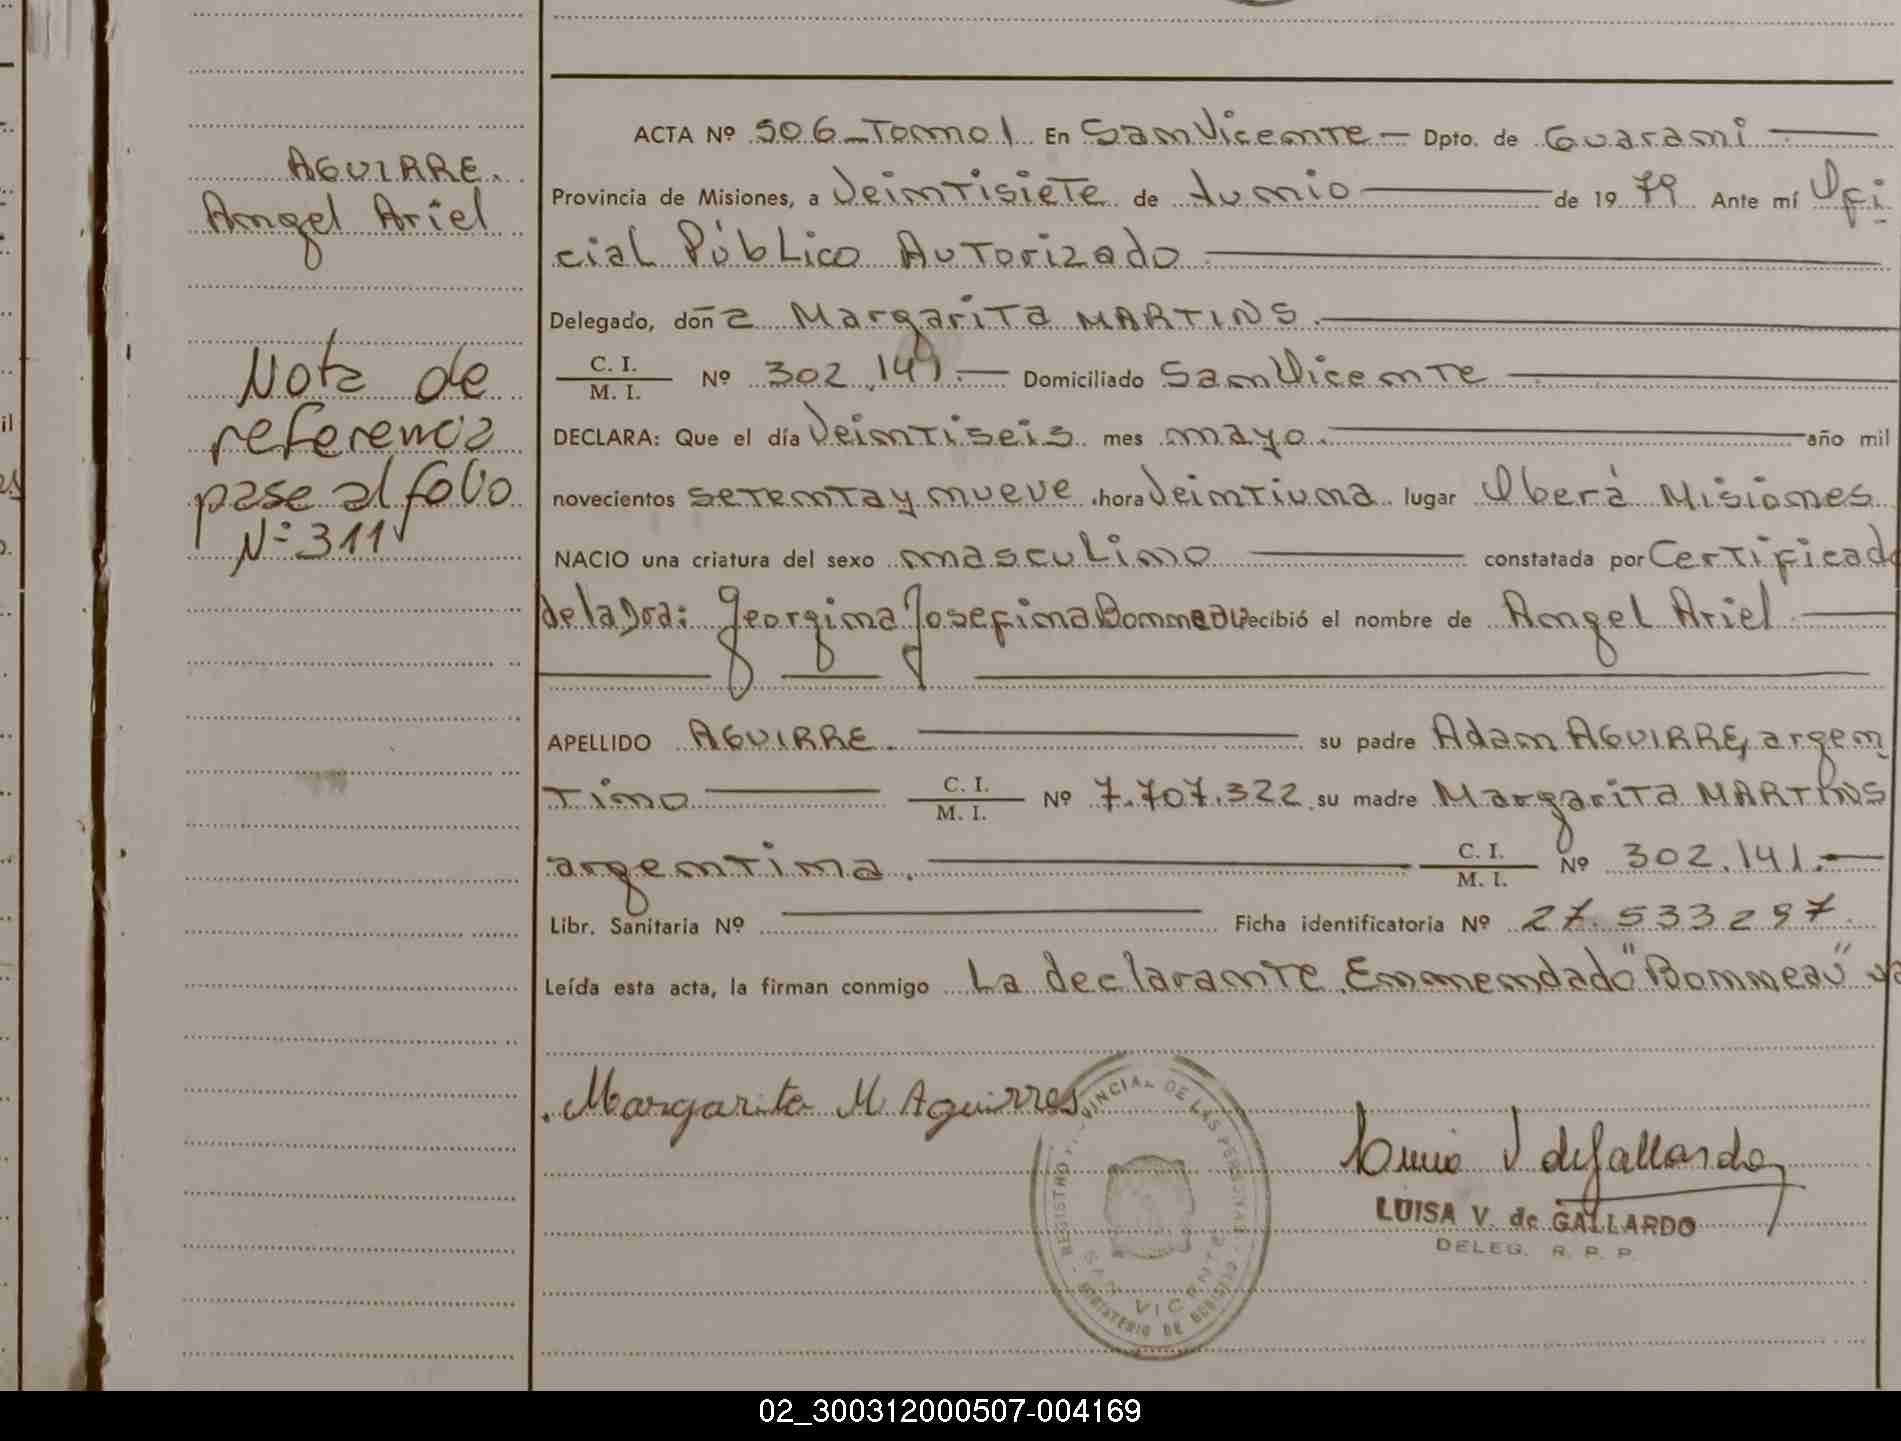 AGUIRRE.
Angel Ariel
Nota de
referencia
pase al folio
Nº 311
ACTA Nº 506 - Tomo I En San Vicente - Dpto. de Guaraní
Provincia de Misiones, a Veintisiete de Junio de 1979 Ante mí Ofi
cial Público Autorizado
Delegado, doña Margarita MARTINS.
C. I.
M. I. Nº 302.141.- Domiciliado San Vicente
DECLARA: Que el día Veintiseis mes mayo. año mil
novecientos setenta y nueve hora Veintiuna lugar Oberá Misiones
NACIO una criatura del sexo masculino constatada por Certificado
de la Dra: Georgina Josefina Bonneau recibió el nombre de Angel Ariel
APELLIDO AGUIRRE. su padre Adam AGUIRRE, argen
tino C. I.
M. I. Nº 7.707.322 su madre Margarita MARTINS
argentina. C. I.
M. I. Nº 302.141.-
Libr. Sanitaria Nº Ficha identificatoria Nº 27.533297.
Leída esta acta, la firman conmigo La declarante. Enmendado "Bonneau"
Margarita M Aguirres
REGISTRO PROVINCIAL DE LAS PERSONAS
SAN VICENTE
MINISTERIO DE GOBIERNO
LUISA V. de GALLARDO
DELEG. R. P. P.
02_300312000507-004169